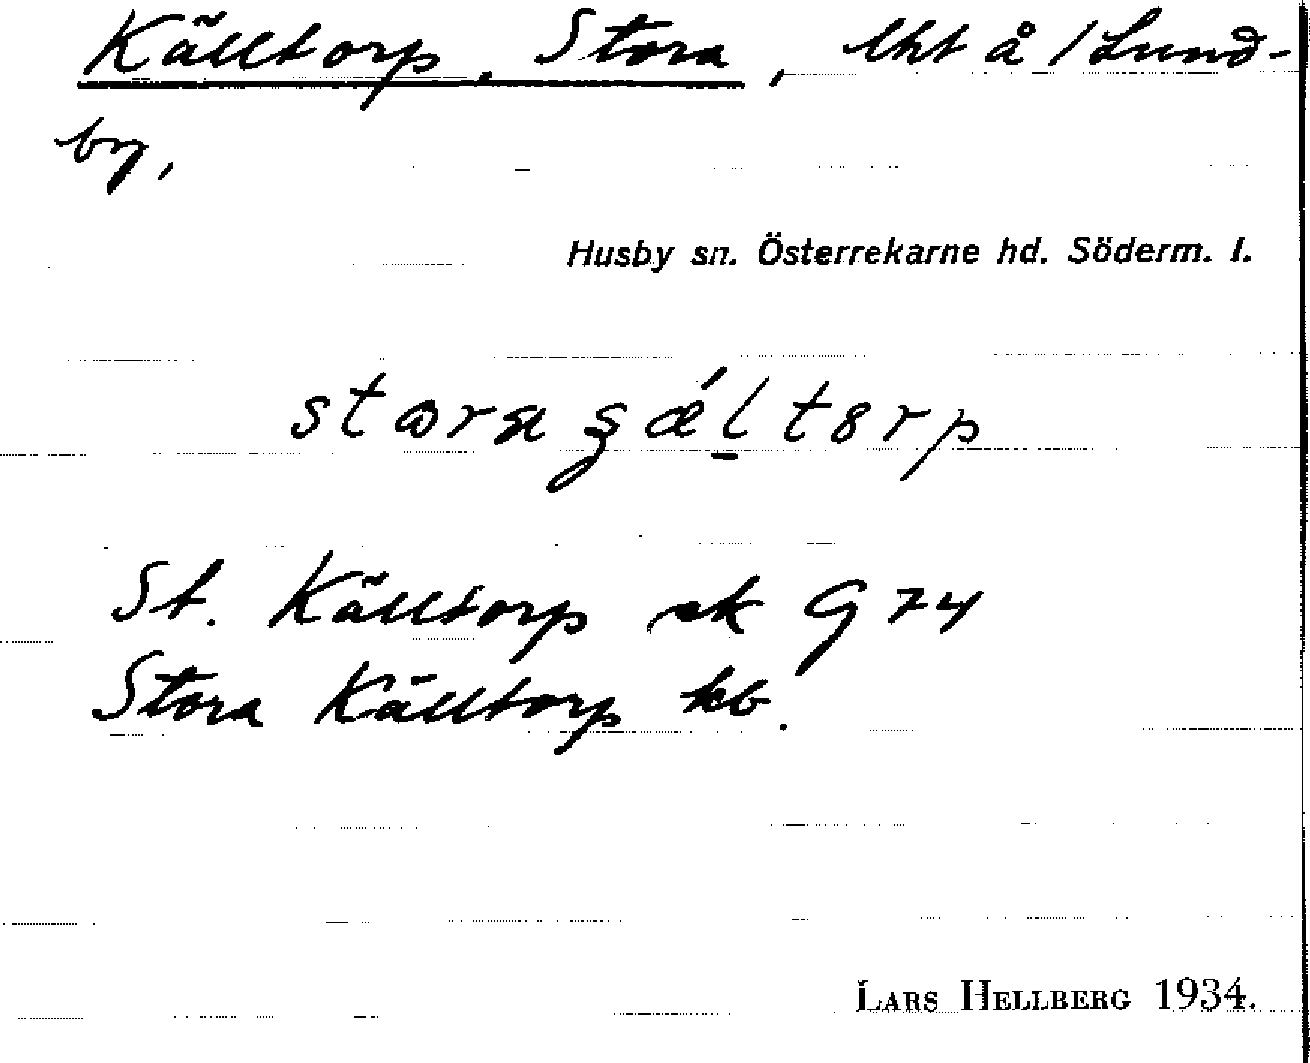 Källtorp, Stora, lht å /Lund-
by,
Husby sn. Österrekarne hd. Söderm. l.
St. Källtorp ek G 74
Stora Källtorp kb.
LARS HELLBERG 1934.